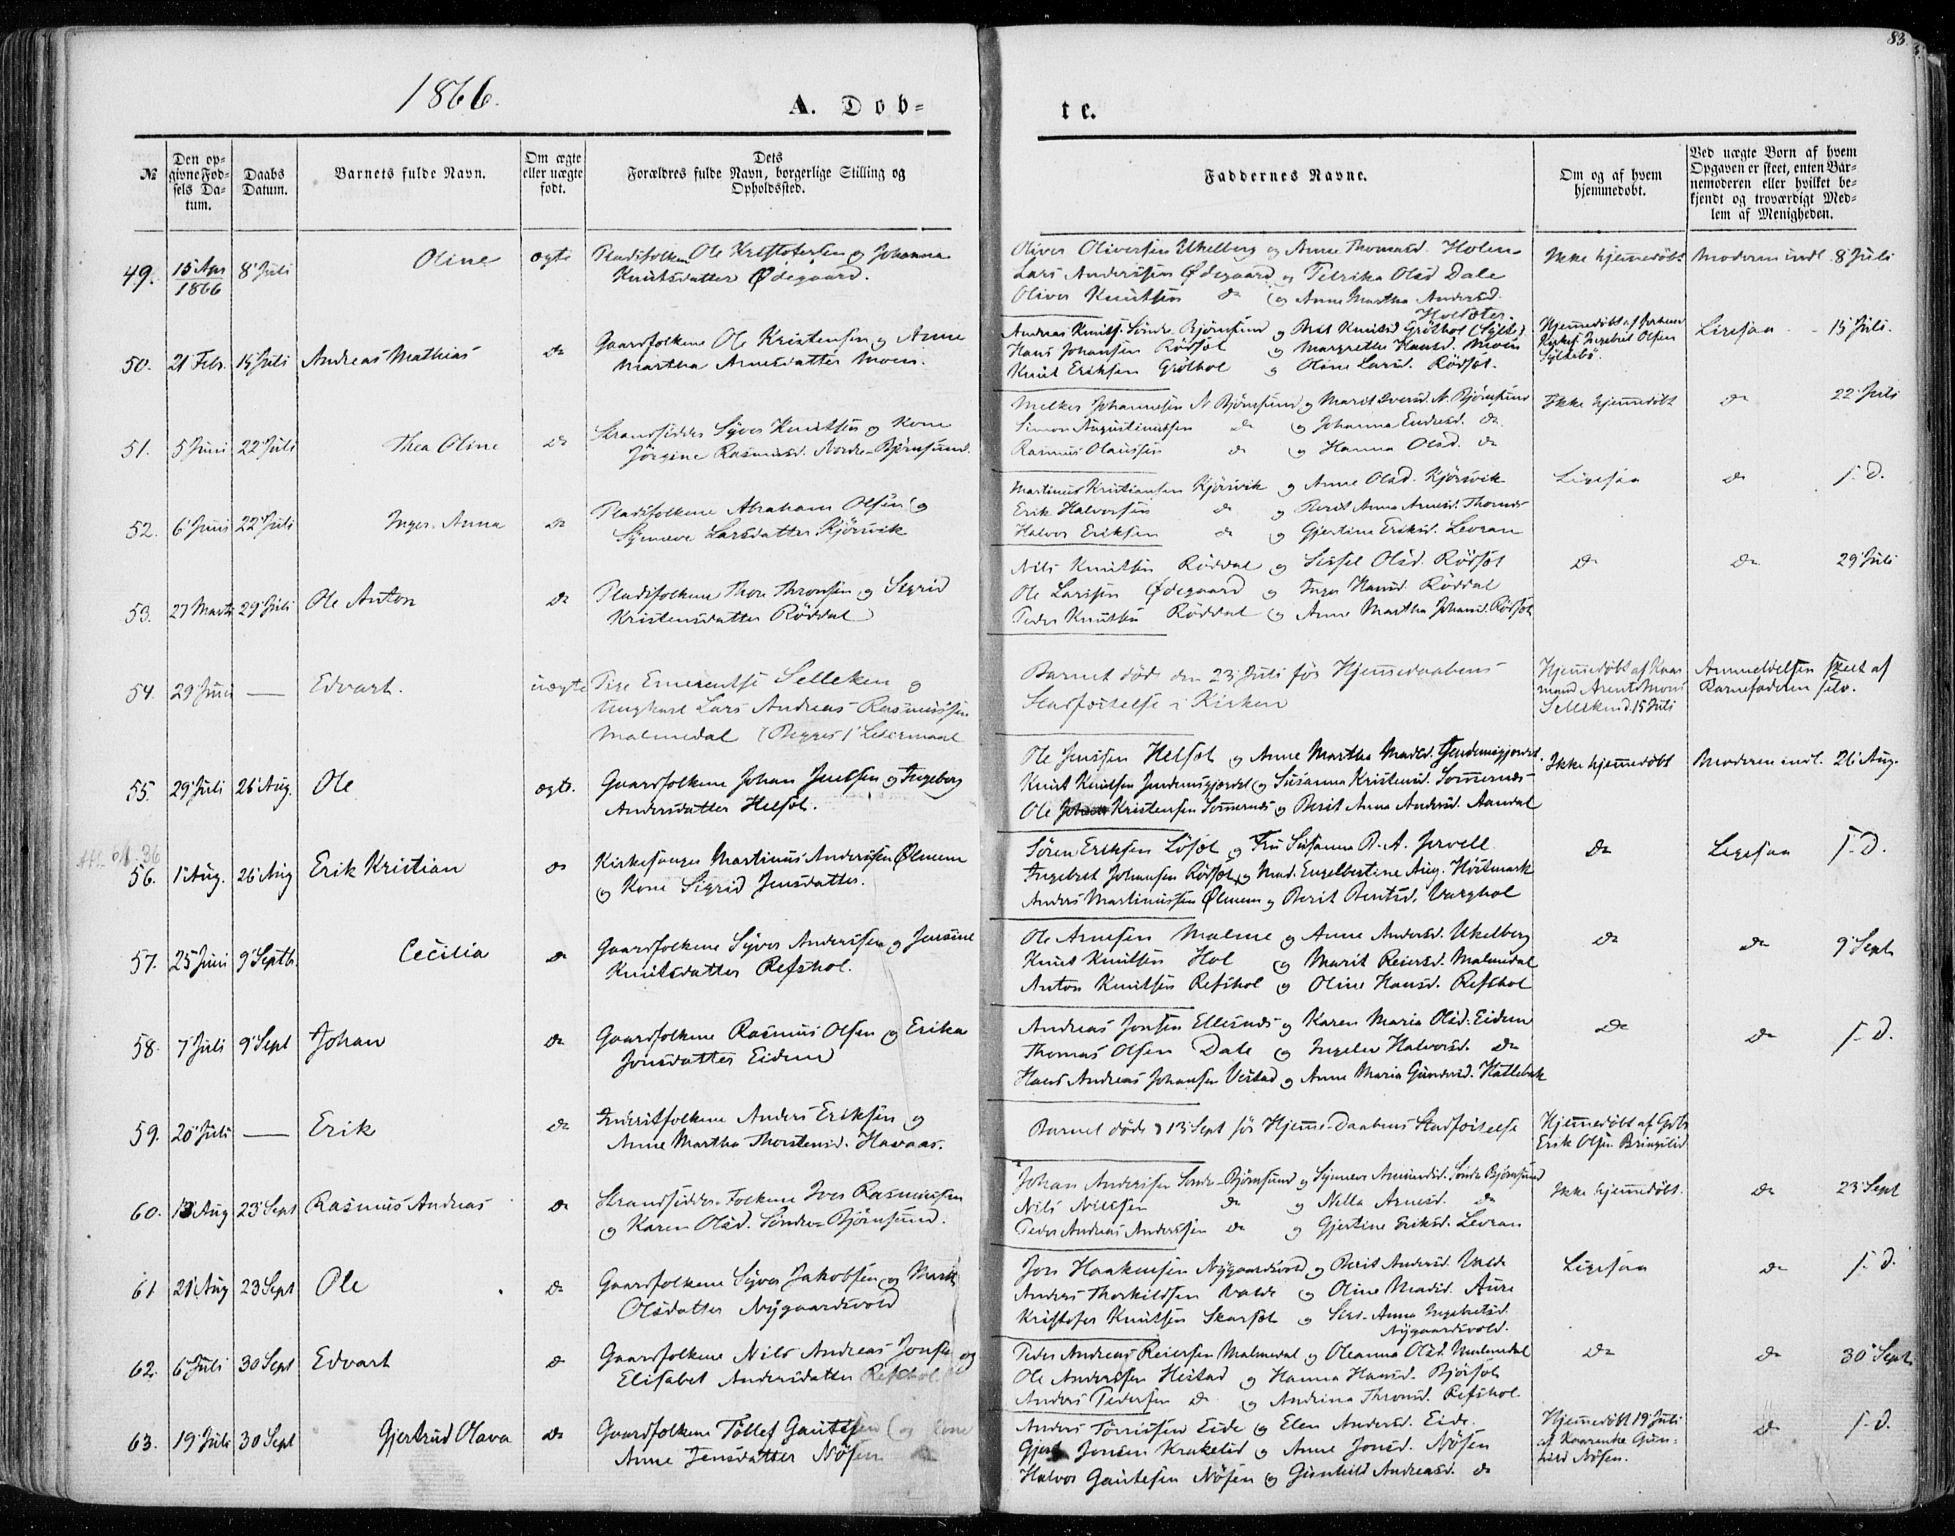 83.
1866.
A. Döb=
te.
№
Den opgivne Fødsels Datum.
Daabs Datum.
Barnets fulde Navn.
Om ægte eller uægte født.
Dets Forældres fulde Navn, borgerlige Stilling og Opholdssted.
Faddernes Navne.
Om og af hvem hjemmedøbt.
Ved uægte Børn af hvem Opgaven er skeet, enten Barnemoderen eller hvilket bekjendt og troværdigt Medlem af Menigheden.
49. 15 Apr 1866 8 Juli Oline ægte
Pladsfolkene Ole Kristofersen og Johanna
Knutsdatter Ødegaard.
Oliver Oliversen Ukelberg og Anne Thomasd. Holen
Lars Anderssen Ødegaard og Fedrika Olsd Dale
Oliver Knutsen do og Anne Martha Andersd.
Holsæter.
Ikke hjemmedøbt Moderen indl. 8 Juli
50. 21 Febr. 15 Juli Andreas Mathias do
Gaardfolkene Ole Kristensen og Anne
Martha Arnesdatter Moen.
Andreas Knuts. Søndr. Bjørnsund og Brit Knutsd Gröthol (Sylte)
Hans Johansen Rødsæt og Margrethe Hansd. Moen
Knut Eriksen Gröthol og Oline Larsd. Rødsæt.
Hjemmedøbt af
Kirkes. Ingebrit Olsen
Syltebø
Ligesaa 15 Juli.
51. 5 Juni 22 Juli Thea Oline do
Strandsidder Syver Knutsen og Kone
Jörgine Rasmusd. Nordre-Bjørnsund.
Melker Johannesen N Bjørnsund og Marit Iversd. N. Bjørnsund
Simon Augustinussen do og Johanna Endresd. do
Rasmus Olaussen do og Hanna Olsd. do
Ikke hjemmedøbt do 22 Juli
52. 6 Juni 22 Juli Inger Anna do
Pladsfolkene Abraham Olsen og
Synneve Larsdatter Kjørsvik
Martinus Kristiansen Kjørsvik og Anne Olsd. Kjørsvik
Erik Halvorsen do og Berit Anna Arnesd. Thornes
Halvor Eriksen do og Gjertine Eriksd. Levran
Ligesaa do s. D.
53. 27 Marts 29 Juli Ole Anton do
Pladsfolkene Thore Thronsen og Sigrid
Kristensdatter Röddal
Nils Knutsen Röddal og Sissel Olsd. Rødsæt
Ole Larssen Ødegaard og Inger Hansd. Röddal
Peder Knutsen Röddal og Anne Martha Johansd. Rødsæt
do do 29 Juli
54. 29 Juni — Edvart. uægte
Pige Emerentse Selleken og
Ungkarl Lars Andreas Rasmussen
Malmedal (Begges 1' Leiermaal
Barnet døde den 23 Juli før Hjemmedaabens
Stadfæstelse i Kirken
Hjemmedøbt af Huusmand Arent Mons
Selleken d. 15 Juli
Anmeldelsen skeet af
Barnefaderen selv.
55. 29 Juli 26 Aug. Ole ægte.
Gaardfolkene Johan Jensen og Ingeborg
Andersdatter Helsæt.
Ole Jenssen Helsæt og Anne Martha Madsd. Jendemsgjerdet.
Knut Knutsen Jendemsgjerdet og Susanna Kristensd. Sommernes
Ole Kristensen Sommernes og Berit Anna Andersd. Aandal
Ikke hjemmedøbt Moderen indl. 26 Aug.
56. 1 Aug. 26 Aug Erik Kristian do
Kirkesanger Martinus Anderssen Ølmem
og Kone Sigrid Jensdatter.
Søren Eriksen Løsæt og Fru Susanna B. A. Jervell
Ingebret Johansen Rødsæt og Mad. Engelbertine Aug. Höstmark
Anders Martinussen Ølmem og Berit Berntsd. Varghol
do Ligesaa s. D.
57. 25 Juni 9 Septb. Cecilia do
Gaardfolkene Syver Anderssen og Jensine
Knutsdatter Refshol.
Ole Arnesen Malme og Anne Andersd. Ukelberg
Knut Knutsen Hol og Marit Reiersd. Malmedal
Anton Knutsen Refshol og Oline Hansd. Refshol
do do 9 Sept
58. 7 Juli 9 Sept Johan do
Gaardfolkene Rasmus Olsen og Erika
Jonsdatter Eidem
Andreas Jonsen Ellesnes og Karen Maria Olsd. Eidem
Thomas Olsen Dale og Ingelev Halvorsd. do
Hans Andreas Johansen Vestad og Anne Maria Gundersd. Hatlebak
do do s. D.
59. 20 Juli — Erik do
Inderstfolkene Anders Eriksen og
Anne Martha Thorstensd. Havaas.
Barnet døde d 13 Sept før Hjemme-Daabens Stadfæstelse
Hjemmedøbt af Gdbr
Erik Olsen Bringslid
60. 13 Aug 23 Sept Rasmus Andreas do
Strandsidder-Folkene Iver Rasmussen
og Karen Olsd. Söndre-Bjørnsund.
Johan Anderssen Søndre-Bjørnsund og Synneve Amundsd. Søndre Bjørnsund
Nils Nilssen do og Nilla Arnesd. do
Peder Andreas Anderssen do og Gjertine Eriksd. Levran
Ikke hjemmedøbt. do 23 Sept
61 21 Aug 23 Sept Ole do
Gaardfolkene Syver Jakobsen og Marit
Olsdatter Nygaardsvold
Jon Haakensen Nygaardsvold og Berit Andersd. Valde
Anders Thorkildsen Valde og Oline Madsd. Aure
Kristofer Knutsen Skarsæt og Ser. Anna Ingebretsd.
Nygaardsvold.
Ligesaa do s. D.
62. 6 Juli 30 Sept Edvart do
Gaardfolkene Nils Andreas Jonsen og
Elisabet Andersdatter Refshol
Peder Andreas Reiersen Malmedal og Oleanna Olsd. Malmedal
Ole Anderssen Hestad og Hanna Hansd. Bjørsæt
Anders Pedersen do og Andrina Thronsd. Refshol
do do 30 Sept
63. 19 Juli 30 Sept Gjertrud Olava do
Gaardfolkene Tollef Gautesen og Kone
Anne Jensdatter Nøsen
Anders Tørrissen Eide og Elen Andersd. Eide.
Gjert Jonsen Kraketid og Anne Jonsd. Nøsen
Halvor Gautesen Nøsen og Gunhild Andreasd. do
Hjemmedøbt 19 Juli
af Kaarenke Gunhild Nøsen.
do s. D.